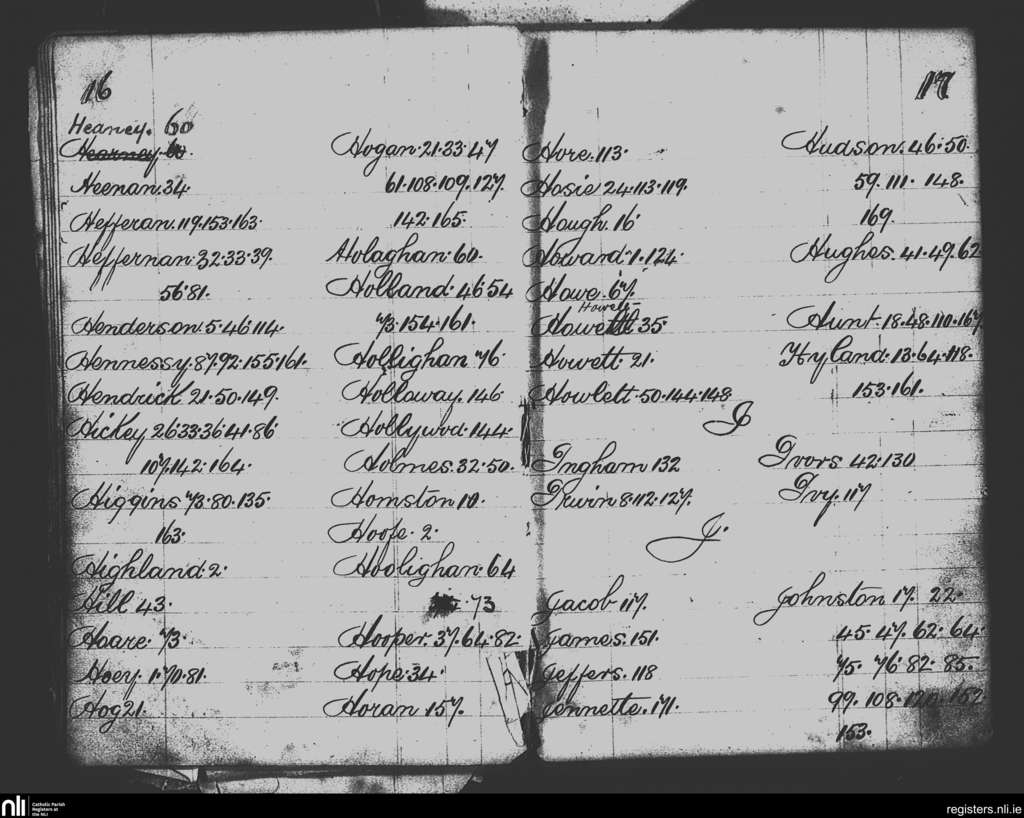 16
Heaney. 60
Hearney. 60.
Heenan. 34
Hefferan. 119. 153. 163.
Heffernan. 32. 33. 39.
56. 81.
Henderson. 5. 46. 114.
Hennessy. 87. 92. 155. 161.
Hendrick 21. 50. 149.
Hickey 26. 33. 36. 41. 86
107. 142. 164.
Higgins 73. 80. 135.
163.
Highland. 2.
Hill 43.
Hoare. 73.
Hoey. 1. 70. 81.
Hog 21.
Hogan. 21. 33. 47
61. 108. 109. 127.
142. 165.
Holaghan. 60.
Holland. 46. 54
73. 154. 161.
Hollighan 76.
Hollaway. 146
Hollywod. 144.
Holmes. 32. 50.
Homston 10.
Hoofe. 2.
Hoolighan. 64
73
Hooper. 37. 64. 82.
Hope. 34.
Horan. 157.
17
Hore. 113.
Hosie 24. 113. 119.
Hough. 16
Howard. 1. 124.
Howe. 67.
Howell
35.
Howett. 21.
Howlett. 50. 144. 148
I
Ingham 132
Irwin 8. 112. 127.
J.
Jacob 117.
James. 151.
Jeffers. 118
Jennette. 171.
Hudson. 46. 50.
59. 111. 148.
169.
Hughes. 41. 49. 62
Hunt. 18. 48. 110. 167
Hyland. 13. 64. 118.
153. 161.
Ivors 42. 130
Ivy. 117
Johnston 17. 22.
45. 47. 62. 64.
75. 76. 82. 85.
99. 108. 120. 152
153.
nli
Catholic Parish
Registers at
the NLI
registers.nli.ie